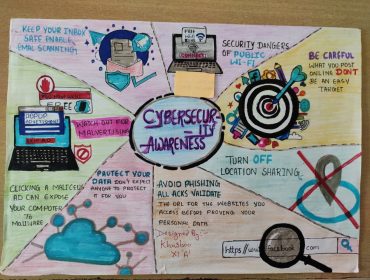 KEEP YOUR INBOX
SAFE ENABLE
EMAIL SCANNING!
FREE
WI-FI
CONNECT
SECURITY DANGERS
OF PUBLIC
WI-FI
BE CAREFUL
WHAT YOU POST
ONLINE DON'T
BE AN EASY
TARGET
POPUP
ADVERTISING
FREE
WATCH OUT FOR
MALVERTISING
CYBERSECUR-
ITY
AWARENESS
CLICKING A MALICEUS
AD CAN EXPOSE
YOUR COMPUTER
TO
MALWARE
PROTECT YOUR
DATA DON'T EXPECT
ANYONE TO PROTECT
IT FOR YOU
AVOID PHISHING
ALL ACKS VALIDATE
THE URL FOR THE WEBSITES YOU
ACCESS BEFORE PROVING YOUR
PERSONAL DATA
Designed By:-
Khushboo
XI 'A'
TURN OFF
LOCATION SHARING
https://www.facebook.com